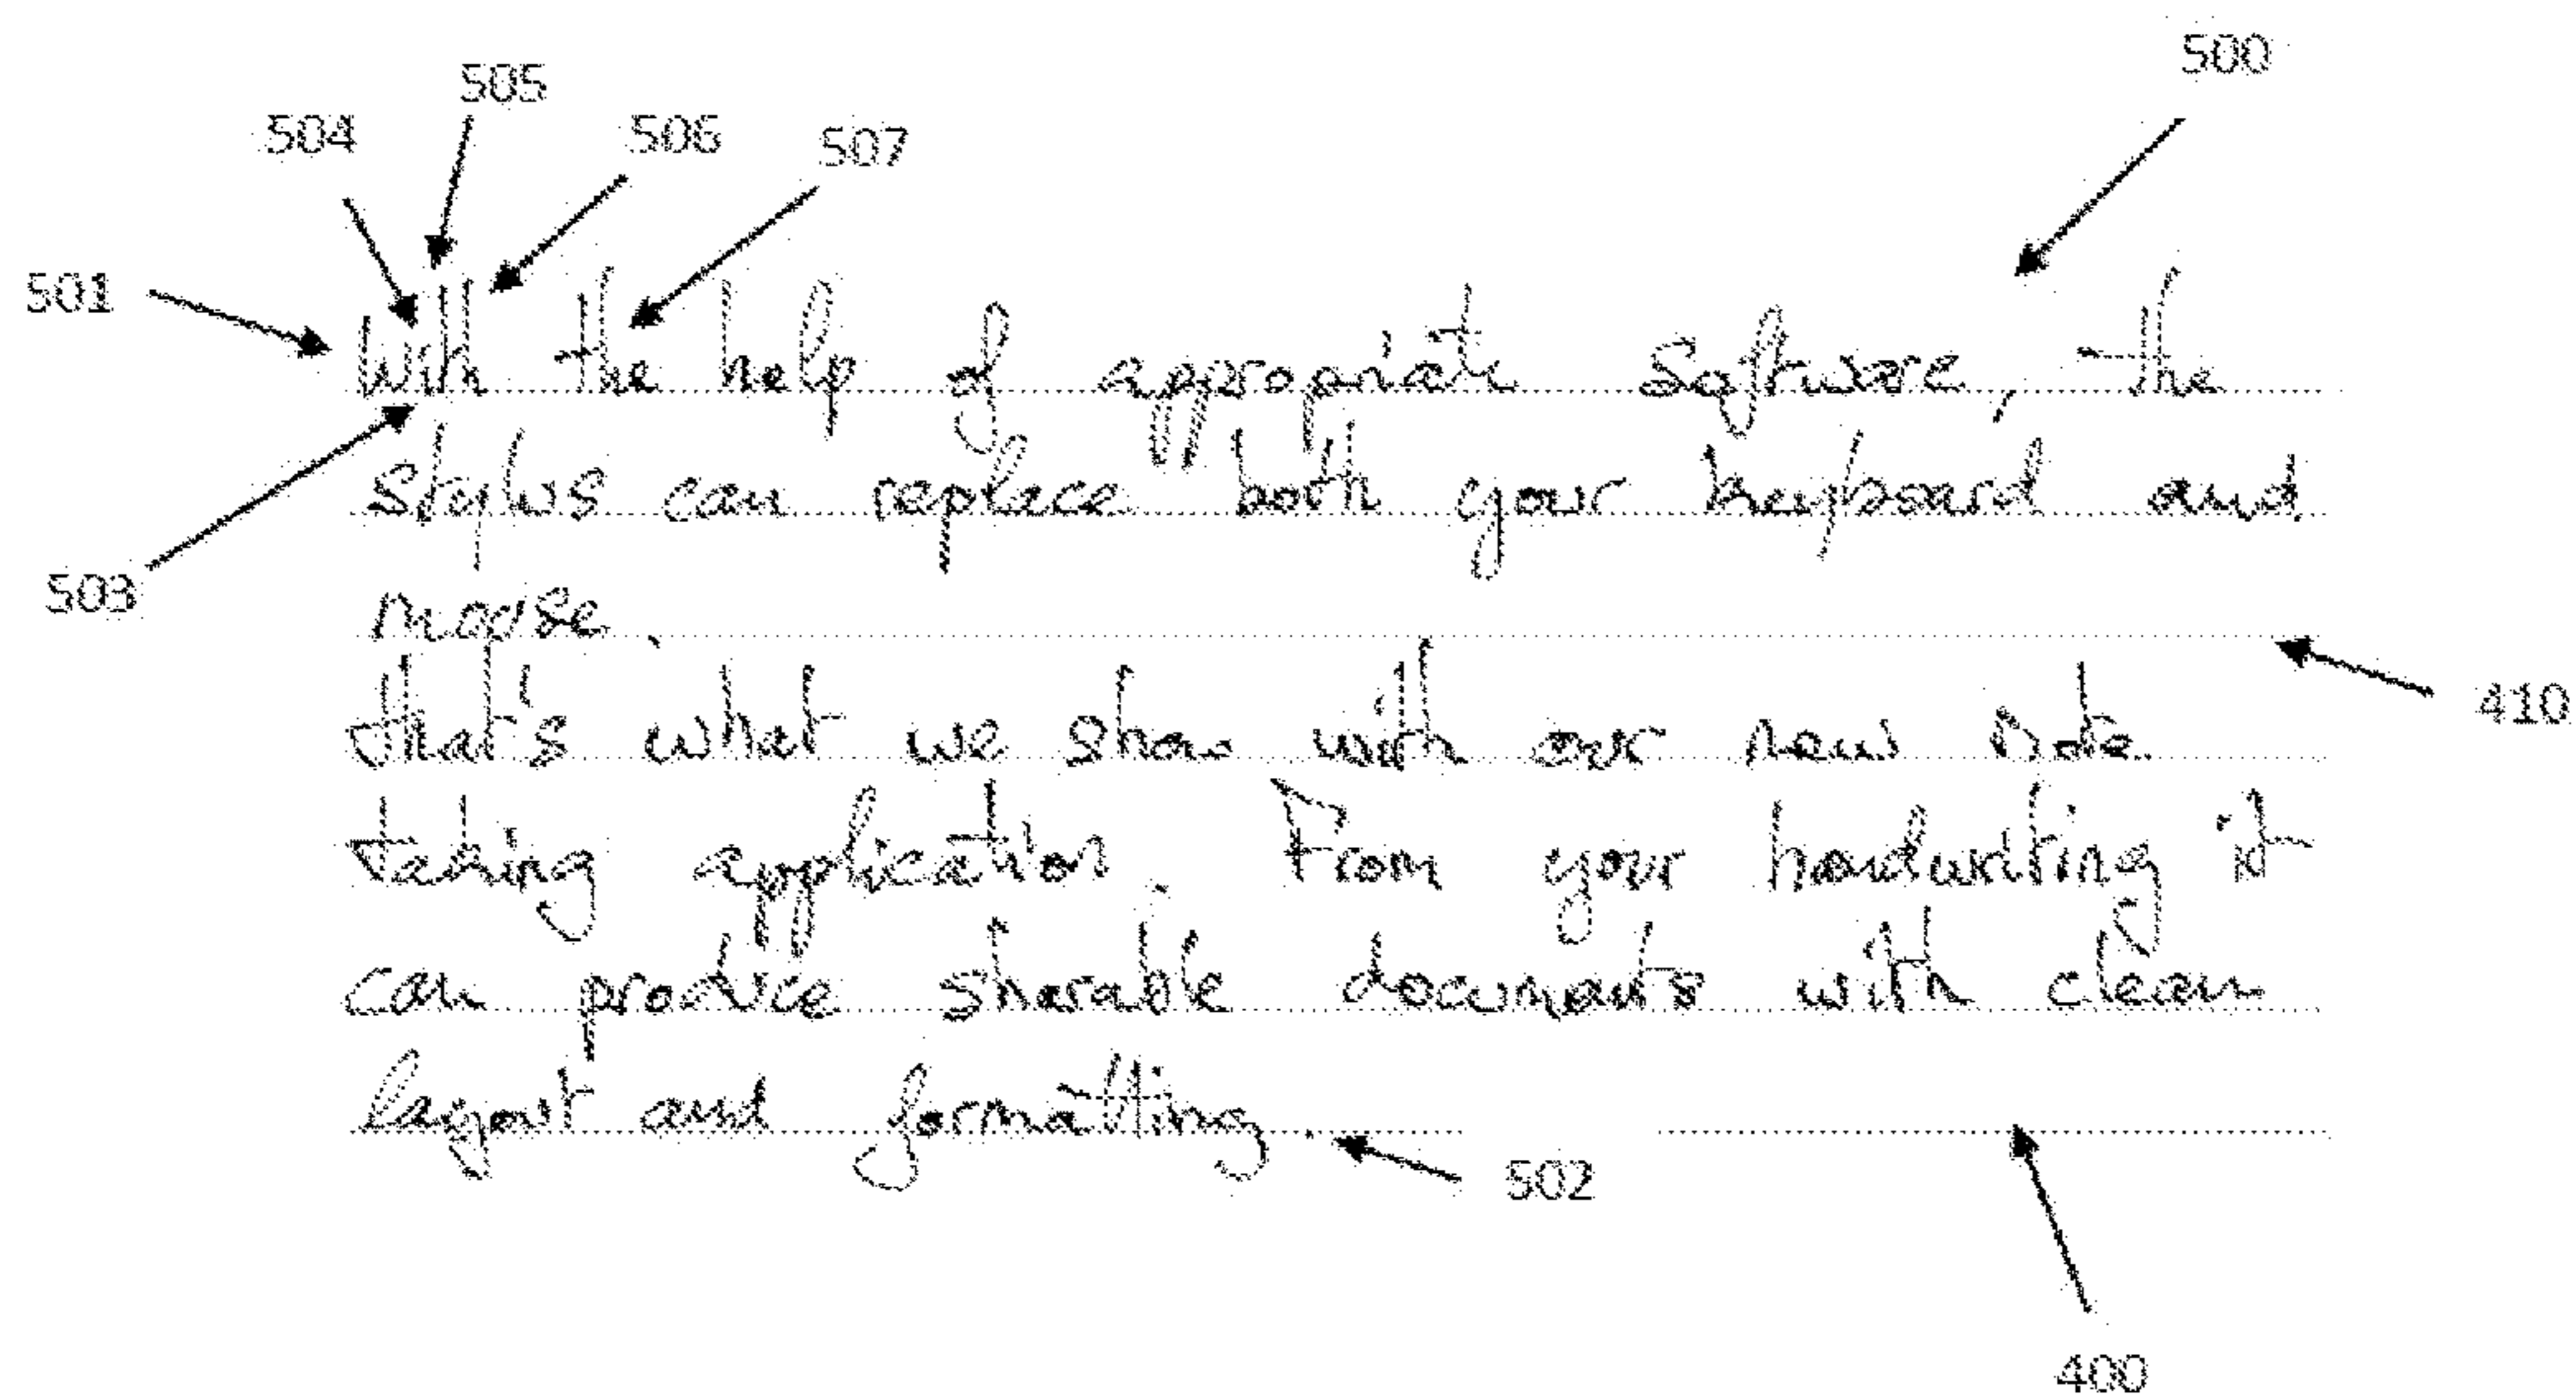 500
505
504 506 507
501
With the help of appropriate Software, the
stylus can replace both your keyboard and
503
mouse.
410
that's what we show with our new Note
taking application. From your handwriting it
can produce sharable documents with clean
layout and formatting.
502
400